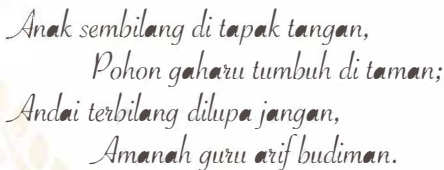 Anak sembilang di tapak tangan,
Pohon gaharu tumbuh di taman;
Andai terbilang dilupa jangan,
Amanah guru arif budiman.